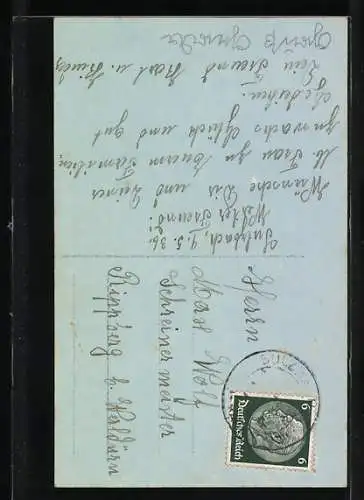 Sulzbach, 4.5.36.
Werter Freund!
Wünsche Dir und Deiner
lb Frau zu Euerm Familien-
zuwachs Glück und gut
Gedeihen.
Dein Freund Karl u. Kinder
Herrn
Max Wolf
Schreinermeister
Rippberg b. Walldürn
6 6
Deutsches Reich